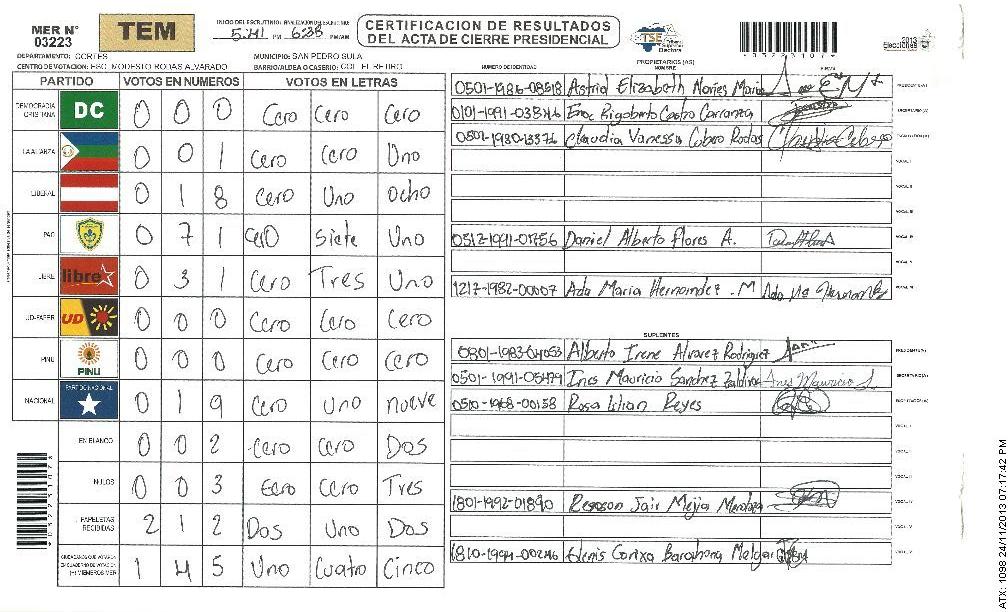 MER N° 03223
TEM
INICIO DEL ESCRUTINIO: FINALIZACION DE ESCRUTINIO:
5:41 PM 6:38 PM/AM
CERTIFICACION DE RESULTADOS
DEL ACTA DE CIERRE PRESIDENCIAL
TSE Tribunal Supremo Electoral
2013
Elecciones
DEPARTAMENTO: CORTES
MUNICIPIO: SAN PEDRO SULA
CENTRO DE VOTACION: ESC. MODESTO RODAS ALVARADO
BARRIO/ALDEA O CASERIO: COL. EL RETIRO
PARTIDO VOTOS EN NUMEROS VOTOS EN LETRAS
DEMOCRACIA CRISTIANA DC 0 0 0 Cero Cero Cero
LA ALIANZA 0 0 1 Cero Cero Uno
LIBERAL 0 1 8 Cero Uno Ocho
PAC 0 7 1 Cero Siete Uno
LIBRE libre 0 3 1 Cero Tres Uno
UD-FAPER UD 0 0 0 Cero Cero Cero
PINU PINU 0 0 0 Cero Cero Cero
NACIONAL PARTIDO NACIONAL 0 1 9 Cero Uno nueve
EN BLANCO 0 0 2 Cero Cero Dos
NULOS 0 0 3 Cero Cero Tres
PAPELETAS RECIBIDAS 2 1 2 Dos Uno Dos
CIUDADANOS QUE VOTARON EN CUADERNO DE VOTACION (+) MIEMBROS MER 1 4 5 Uno Cuatro Cinco
PROPIETARIOS (AS)
NUMERO DE IDENTIDAD NOMBRE FIRMA
0501-1986-08518 Astrid Elizabeth PRESIDENTE(A)
0101-1991-03846 Enoc Rigoberto Castro Carranza SECRETARIO(A)
0801-1980-13376 Claudia Vanessa Cubero Rodas ESCRUTADOR(A)
VOCAL I
VOCAL II
VOCAL III
0512-1991-01756 Daniel Alberto Flores A. VOCAL IV
VOCAL V
1217-1982-00007 Ada Maria Hernandez .M VOCAL VI
SUPLENTES
0801-1983-04053 Alberto Irene Alvarez Rodriguez PRESIDENTE(A)
0501-1991-05479 Ines Mauricio Sanchez Zaldivar SECRETARIO(A)
0510-1968-00158 Rosa Lilian Reyes ESCRUTADOR(A)
VOCAL I
VOCAL II
1801-1992-01890 Jair Mejia Mendoza
VOCAL V
1810-1994-00246 Barahona Melgar
ATX: 1098 24/11/2013 07:17:42 PM